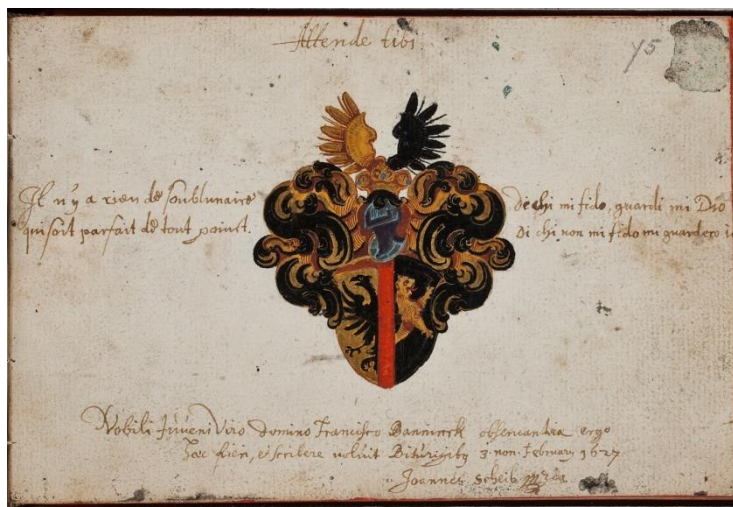 Attende tibi
45
Il n'y a rien de soublunaire
qui soit parfait de tout poinct.
Di chi mi fido, guardi mi Dio
Di chi non mi fido mi guardero io
Nobili Juveni Viro Domino Francisco Banninck observantiae ergo
haec fieri, et scribere voluit Biturigibus 3. non. February 1627
Joannes Scheib